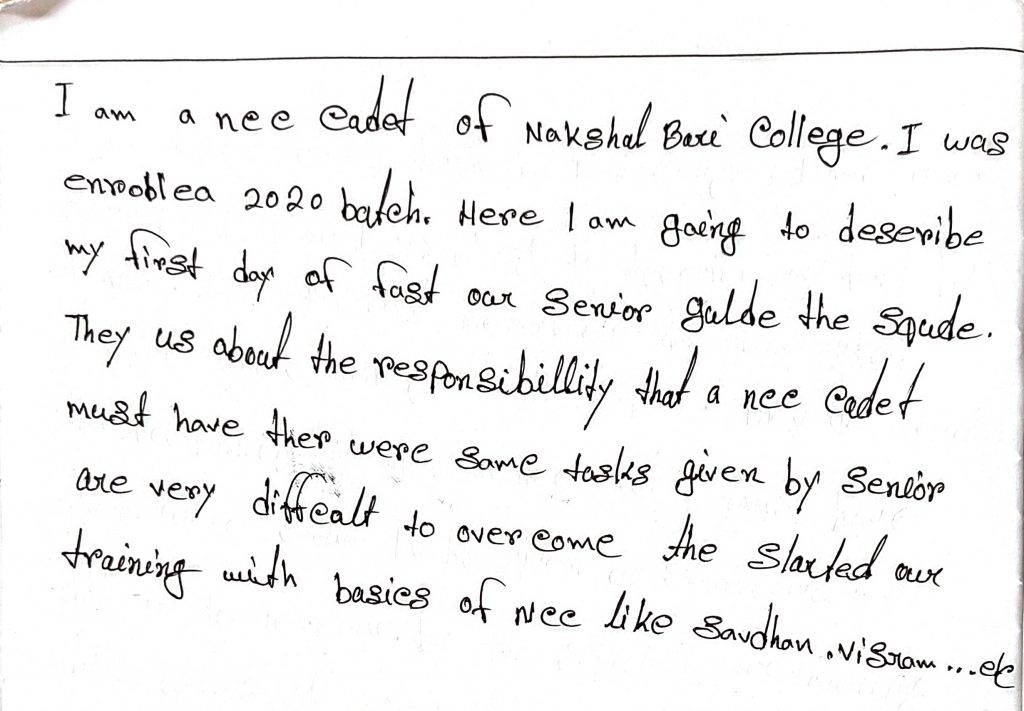 I am a ncc cadet of Nakshal Bari College. I was
enrooblea 2020 batch. Here I am going to describe
my first day of fast our Senior gulde the Squde.
They us about the responsibillity that a ncc cadet
must have ther were same tasks given by Senior
are very difficalt to overcome the Slarted our
training with basics of Ncc like Savdhan, Visram...etc